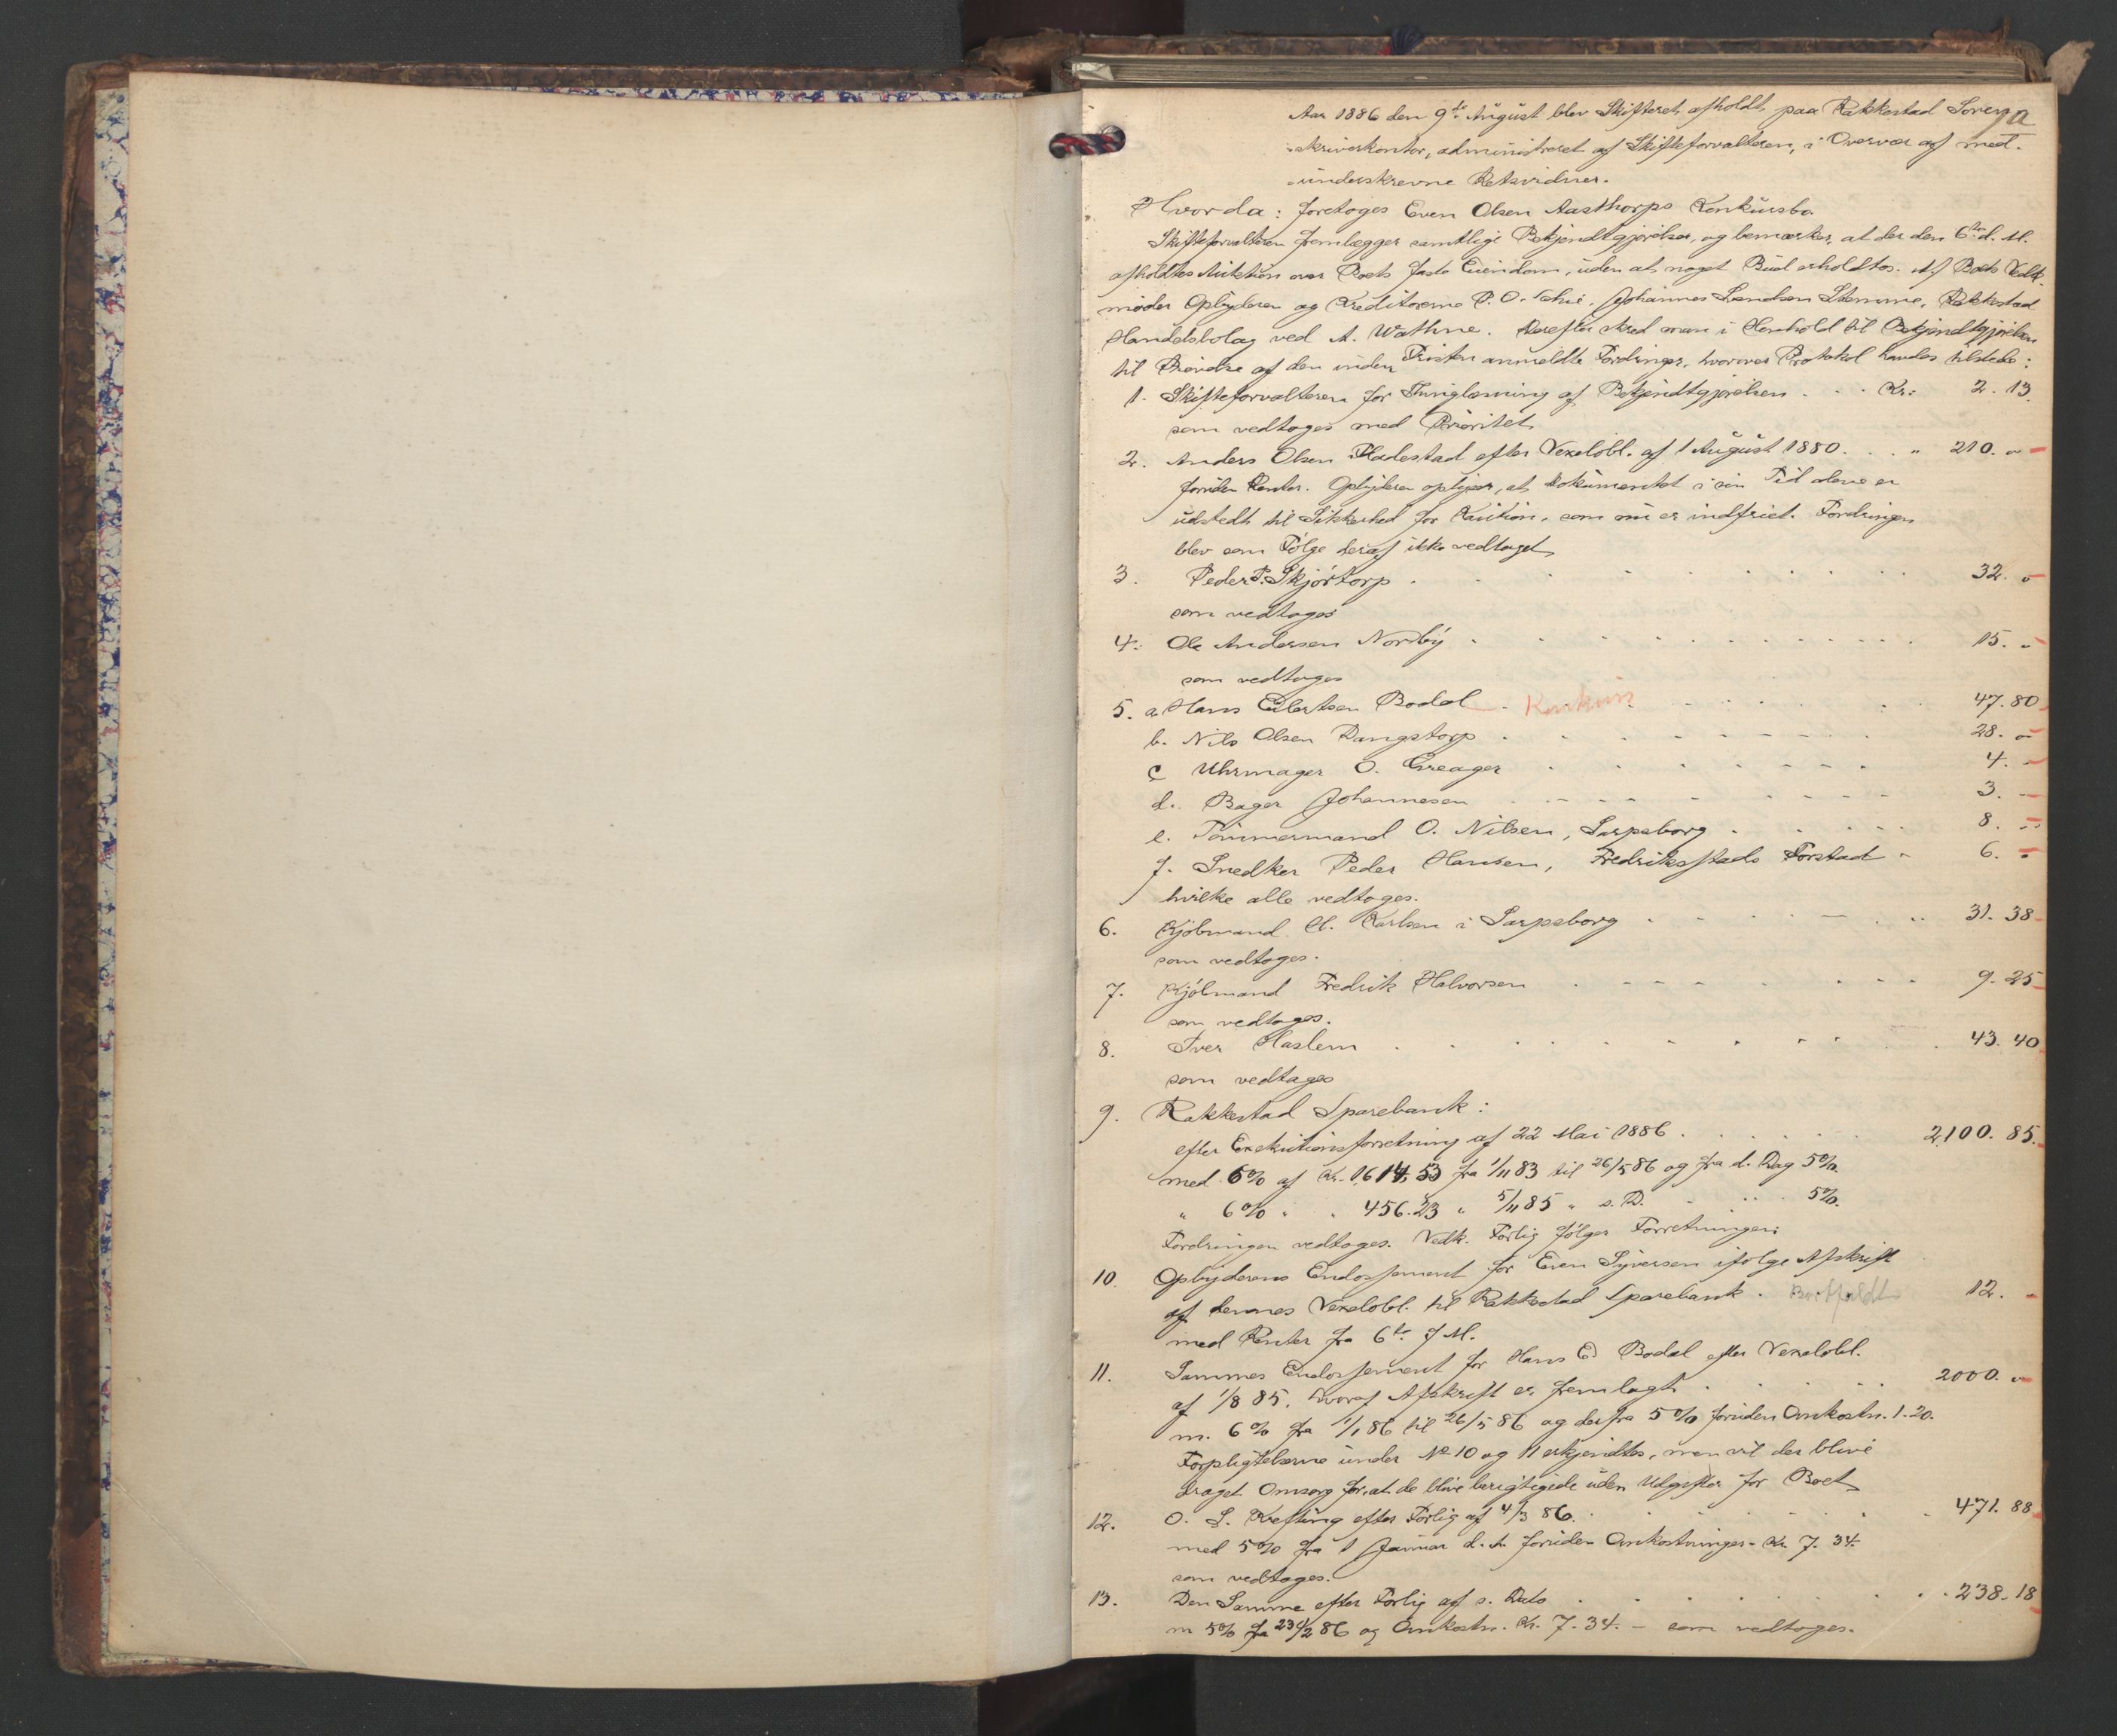 Aar 1886 den 9de August blev Skifteret afholdt paa Rakkestad Soren
a
skriverkontor, administreret af Skifteforvalteren, i Overvær af med-
underskrevne Retsvidner.
Hvorda: foretoges Even Olsen Aasthorps Konkursbo
Skifteforvalteren fremlægger samtlige Bekjendtgjørelser, og bemærker, at der den 6te d. M.
afholdtes Auktion over Boets faste Eiendom, uden at noget Bud erholdtes. Af Boets Vedk.
møder Opbyderen og Kreditorerne P. O. Johannes Stemme, Rakkestad
Handelsbolag ved A. Wathne. Derefter skred man i Henhold til Bekjendtgjørelsen
til Prøvelse af den inden Fristen anmeldte Fordringer, hvorover Protokol havdes tilstede:
1. Skifteforvalteren for Thinglæsning af Bekjendtgjørelsen . . . Kr: 2. 13
som vedtoges med Prioritet
2. Anders Olsen Fladestad efter Vexelobl. af 1 August 1880. . . " 210. "
foruden Renter. Opbyderen oplyser, at Dokumentet i sin Tid alene er
udstedt til Sikkerhed for Kaution, som nu er indfriet. Fordringen
blev som Følge heraf ikke vedtaget
3. Peder P. Skjörtorp . . . 32. "
som vedtoges
4. Ole Andersen Norby . . . 15. "
som vedtoges
5. a Hans Eilertsen Bodal . Konkurs . . . 47. 80
b. Nils Olsen Dangstorp . . . 28. "
c Uhrmager O. Greager . . . 4. "
d. Bager Johannesen . . . 3. "
e. Tømmermand O. Nilsen, Sarpsborg . . . 8. "
f. Snedker Peder Hansen, Fredriksstads Forstad " 6. "
hvilke alle vedtoges.
6. Kjöbmand H. Karlsen i Sarpsborg . . . 31. 38
som vedtoges.
7. Kjöbmand Fredrik Halvorsen . . . 9. 25
som vedtoges.
8. Iver Haslem . . . 43. 40
som vedtages
9. Rakkestad Sparebank:
efter Exekutionsforretning af 22 Mai 1886 . . . 2100. 85.
med 6% af Kr. 1614,53 fra 1/11 83 til 26/5 86 og fra d. Dag 5%.
" 6% " " 456.23 " 5/11 85 " s. D. " " 5%.
Fordringen vedtoges. Vedk. Forlig følger Forretningen.
10. Opbyderens Endossement for Even Syversen ifølge Afskrift
af dennes Vexelobl. til Rakkestad Sparebank . Bortfaldt 12. "
med Renter fra 6te f. M.
11. Sammes Endossement for Hans E. Bodal efter Vexelobl.
af 1/8 85. hvoraf Afskrift er fremlagt . . . 2000. "
m. 6% fra 1/1 86 til 26/5 86 og derfra 5% foruden Omkostn. 1.20.
Forpligtelserne under No 10 og 11 erkjendtes, men vil der blive
draget Omsorg for, at de blive berigtigede uden Udgifter for Boet
12. O. S. Krefting efter Forlig af 4/3 86. . . . 471. 88
med 5% fra 1 Januar d. A. foruden Omkostninger - Kr. 7. 34.
som vedtoges.
13. Den Samme efter Forlig af s. Dato . . . 238. 18
m 5% fra 23/2 86 og Omkostn. Kr. 7. 34. - som vedtoges.